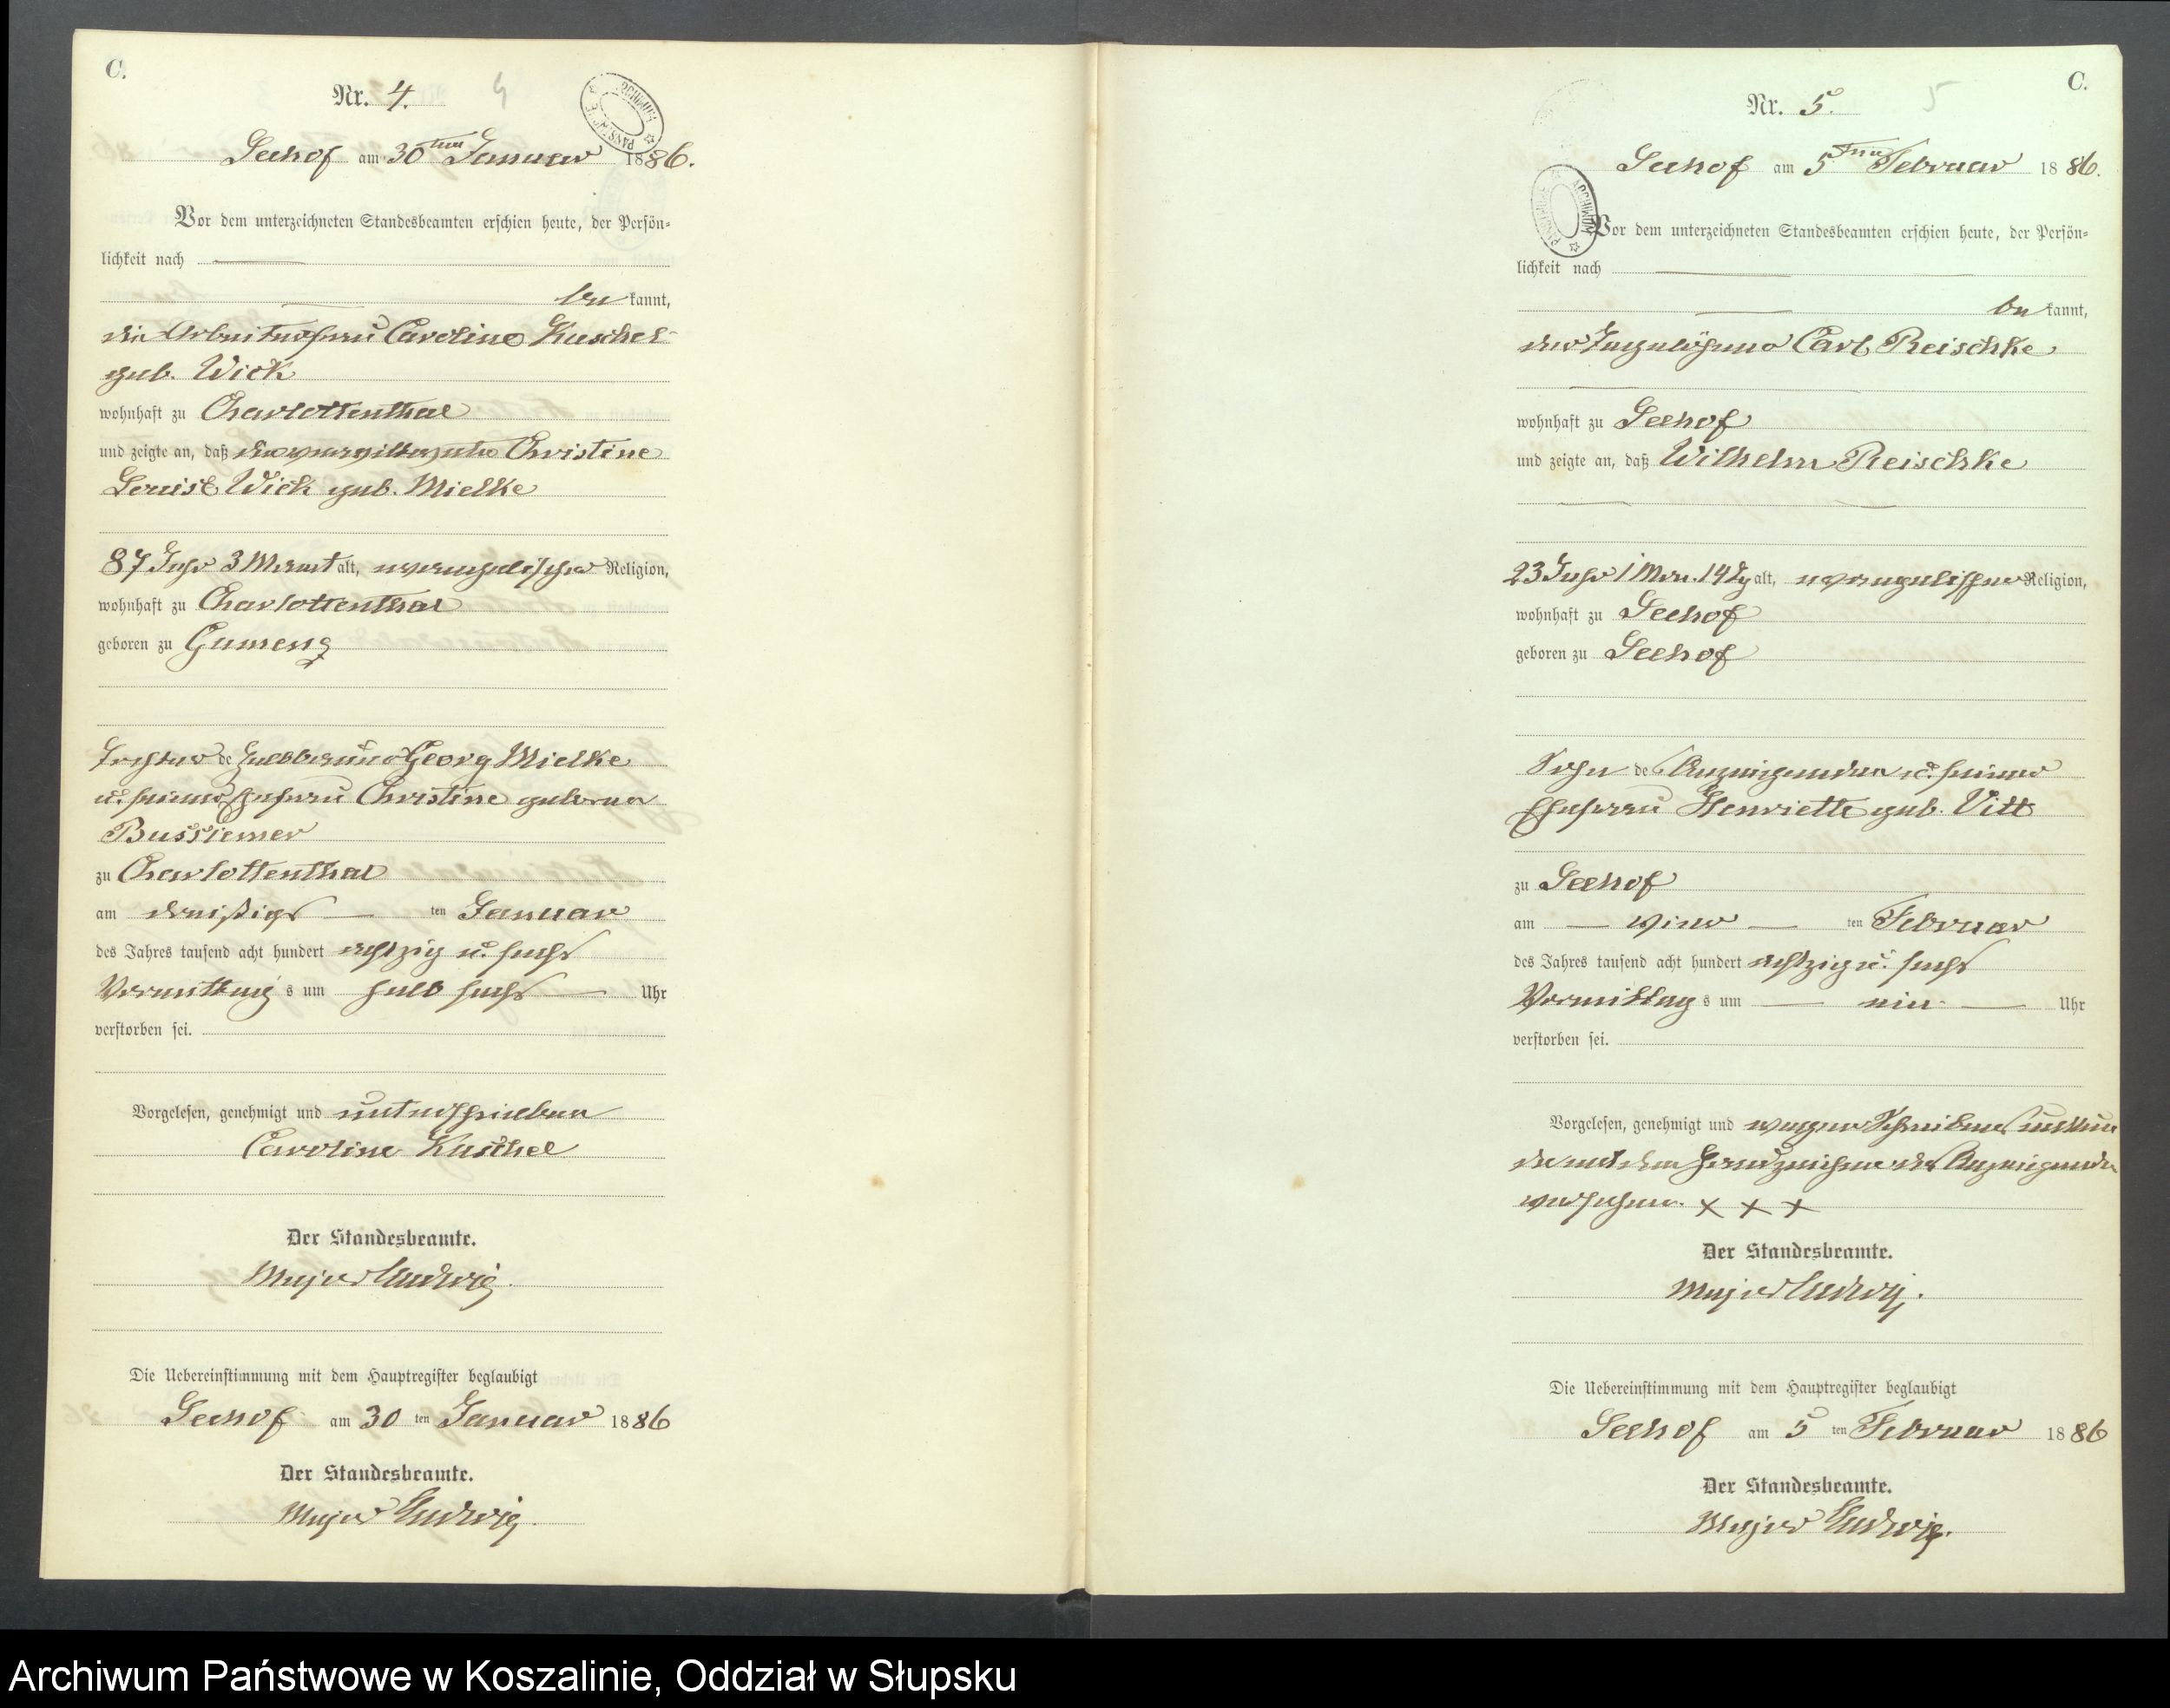 C.
Nr. 4.
4
Seehof am 30ten Januar 1886.
Vor dem unterzeichneten Standesbeamten erschien heute, der Persön-
lichkeit nach
be kannt,
die Arbeiterfrau Caroline Kuschel
geb. Wick
wohnhaft zu Charlottenthal
und zeigte an, daß die Christine
Louise Wick geb. Mielke
87 Jahr 3 Monat alt, evangelischer Religion,
wohnhaft zu Charlottenthal
geboren zu Gumenz
Tochter de Georg Mielke
u. seiner Ehefrau Christine geborne
Bussiemer
zu Charlottenthal
am dreißigst ten Januar
des Jahres tausend acht hundert achtzig u. sechs
Vormittag s um halb sechs Uhr
verstorben sei.
Vorgelesen, genehmigt und unterschrieben
Caroline Kuschel
Der Standesbeamte.
Major Ludwig.
Die Uebereinstimmung mit dem Hauptregister beglaubigt
Seehof am 30 ten Januar 1886
Der Standesbeamte.
Major Ludwig.
C.
Nr. 5.
5
Seehof am 5ten Februar 1886.
Vor dem unterzeichneten Standesbeamten erschien heute, der Persön-
lichkeit nach
be kannt,
der Tagelöhner Carl Reischke
wohnhaft zu Seehof
und zeigte an, daß Wilhelm Reischke
23 Jahr 1 Mon. 14 Tg alt, evangelischer Religion,
wohnhaft zu Seehof
geboren zu Seehof
Sohn des Anzeigenden u. seiner
Ehefrau Henriette geb. Vitt
zu Seehof
am vier ten Februar
des Jahres tausend acht hundert achtzig u. sechs
Vormittag s um ein Uhr
verstorben sei.
Vorgelesen, genehmigt und wegen Schreibens unkun
de mit dem Handzeichen des Anzeigenden
versehen. X X X
Der Standesbeamte.
Major Ludwig.
Die Uebereinstimmung mit dem Hauptregister beglaubigt
Seehof am 5 ten Februar 1886
Der Standesbeamte.
Major Ludwig.
Archiwum Państwowe w Koszalinie, Oddział w Słupsku